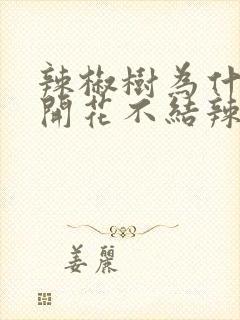 辣椒樹為什
開花不結辣
姜麗